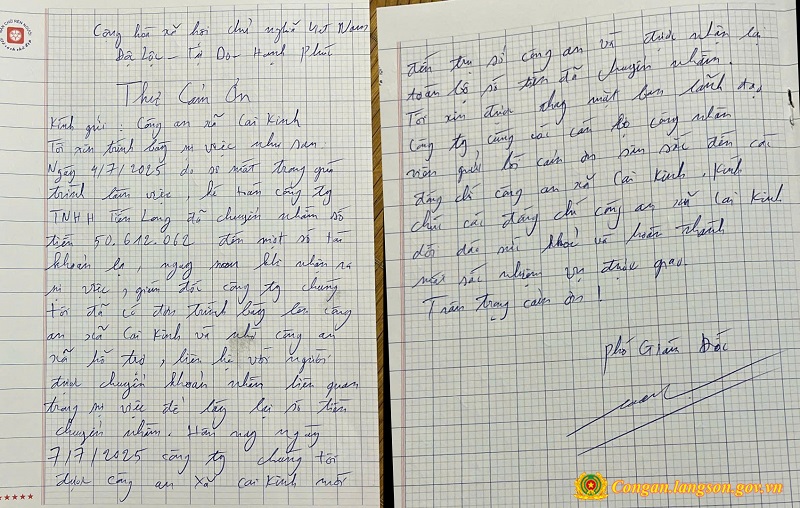 Cộng hoà xã hội chủ nghĩa Việt Nam
Độc Lập - Tự Do - Hạnh Phúc
Thư Cảm Ơn
Kính gửi: Công an xã Cai Kinh
Tôi xin trình bày sự việc như sau:
Ngày 4/7/2025 do sơ xuất trong quá
trình làm việc, kế toán công ty
TNHH Tiến Long đã chuyển nhầm số
tiền 50.612.062 đến một số tài
khoản lạ, ngay sau khi nhận ra
sự việc, giám đốc công ty chúng
tôi đã có đơn trình bày lên công
an xã Cai Kinh và nhờ công an
xã hỗ trợ, liên hệ với người
được chuyển khoản nhầm liên quan
trong sự việc để lấy lại số tiền
chuyển nhầm. Hôm nay ngày
7/7/2025 công ty chúng tôi
được công an xã Cai Kinh mời
đến trụ sở công an và được nhận lại
toàn bộ số tiền đã chuyển nhầm.
Tôi xin được thay mặt ban lãnh đạo
công ty, cùng các cán bộ công nhân
viên gửi lời cảm ơn sâu sắc đến các
đồng chí công an xã Cai Kinh. Kính
chúc các đồng chí công an xã Cai Kinh
dồi dào sức khoẻ và hoàn thành
xuất sắc nhiệm vụ được giao.
Trân trọng cảm ơn!
Phó Giám Đốc
Congan.langson.gov.vn